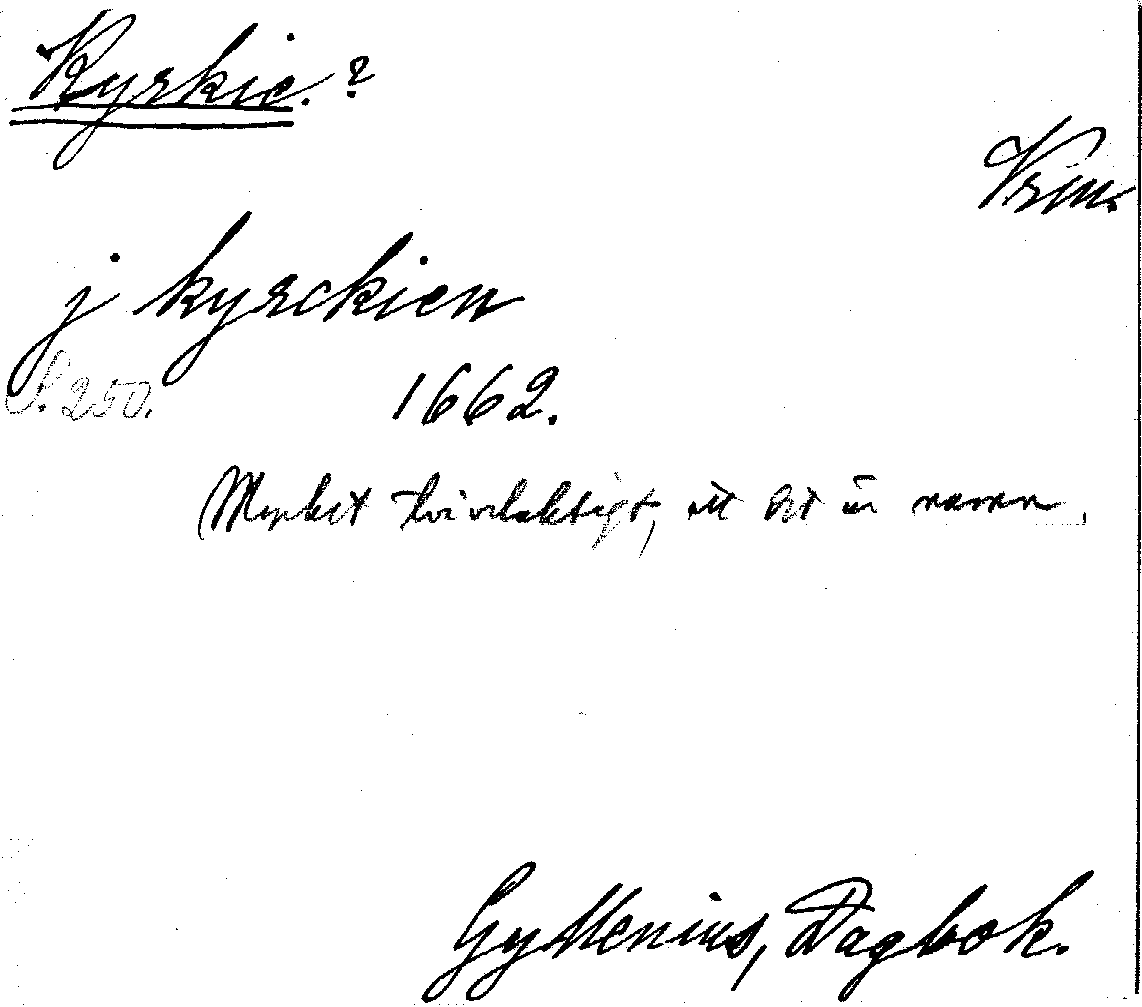 Kyrkie. ?
Vrm.
j kyrckien
S. 250.
1662.
(Mycket tvivelaktigt, att det är namn.
Gyllenius, Dagbok.